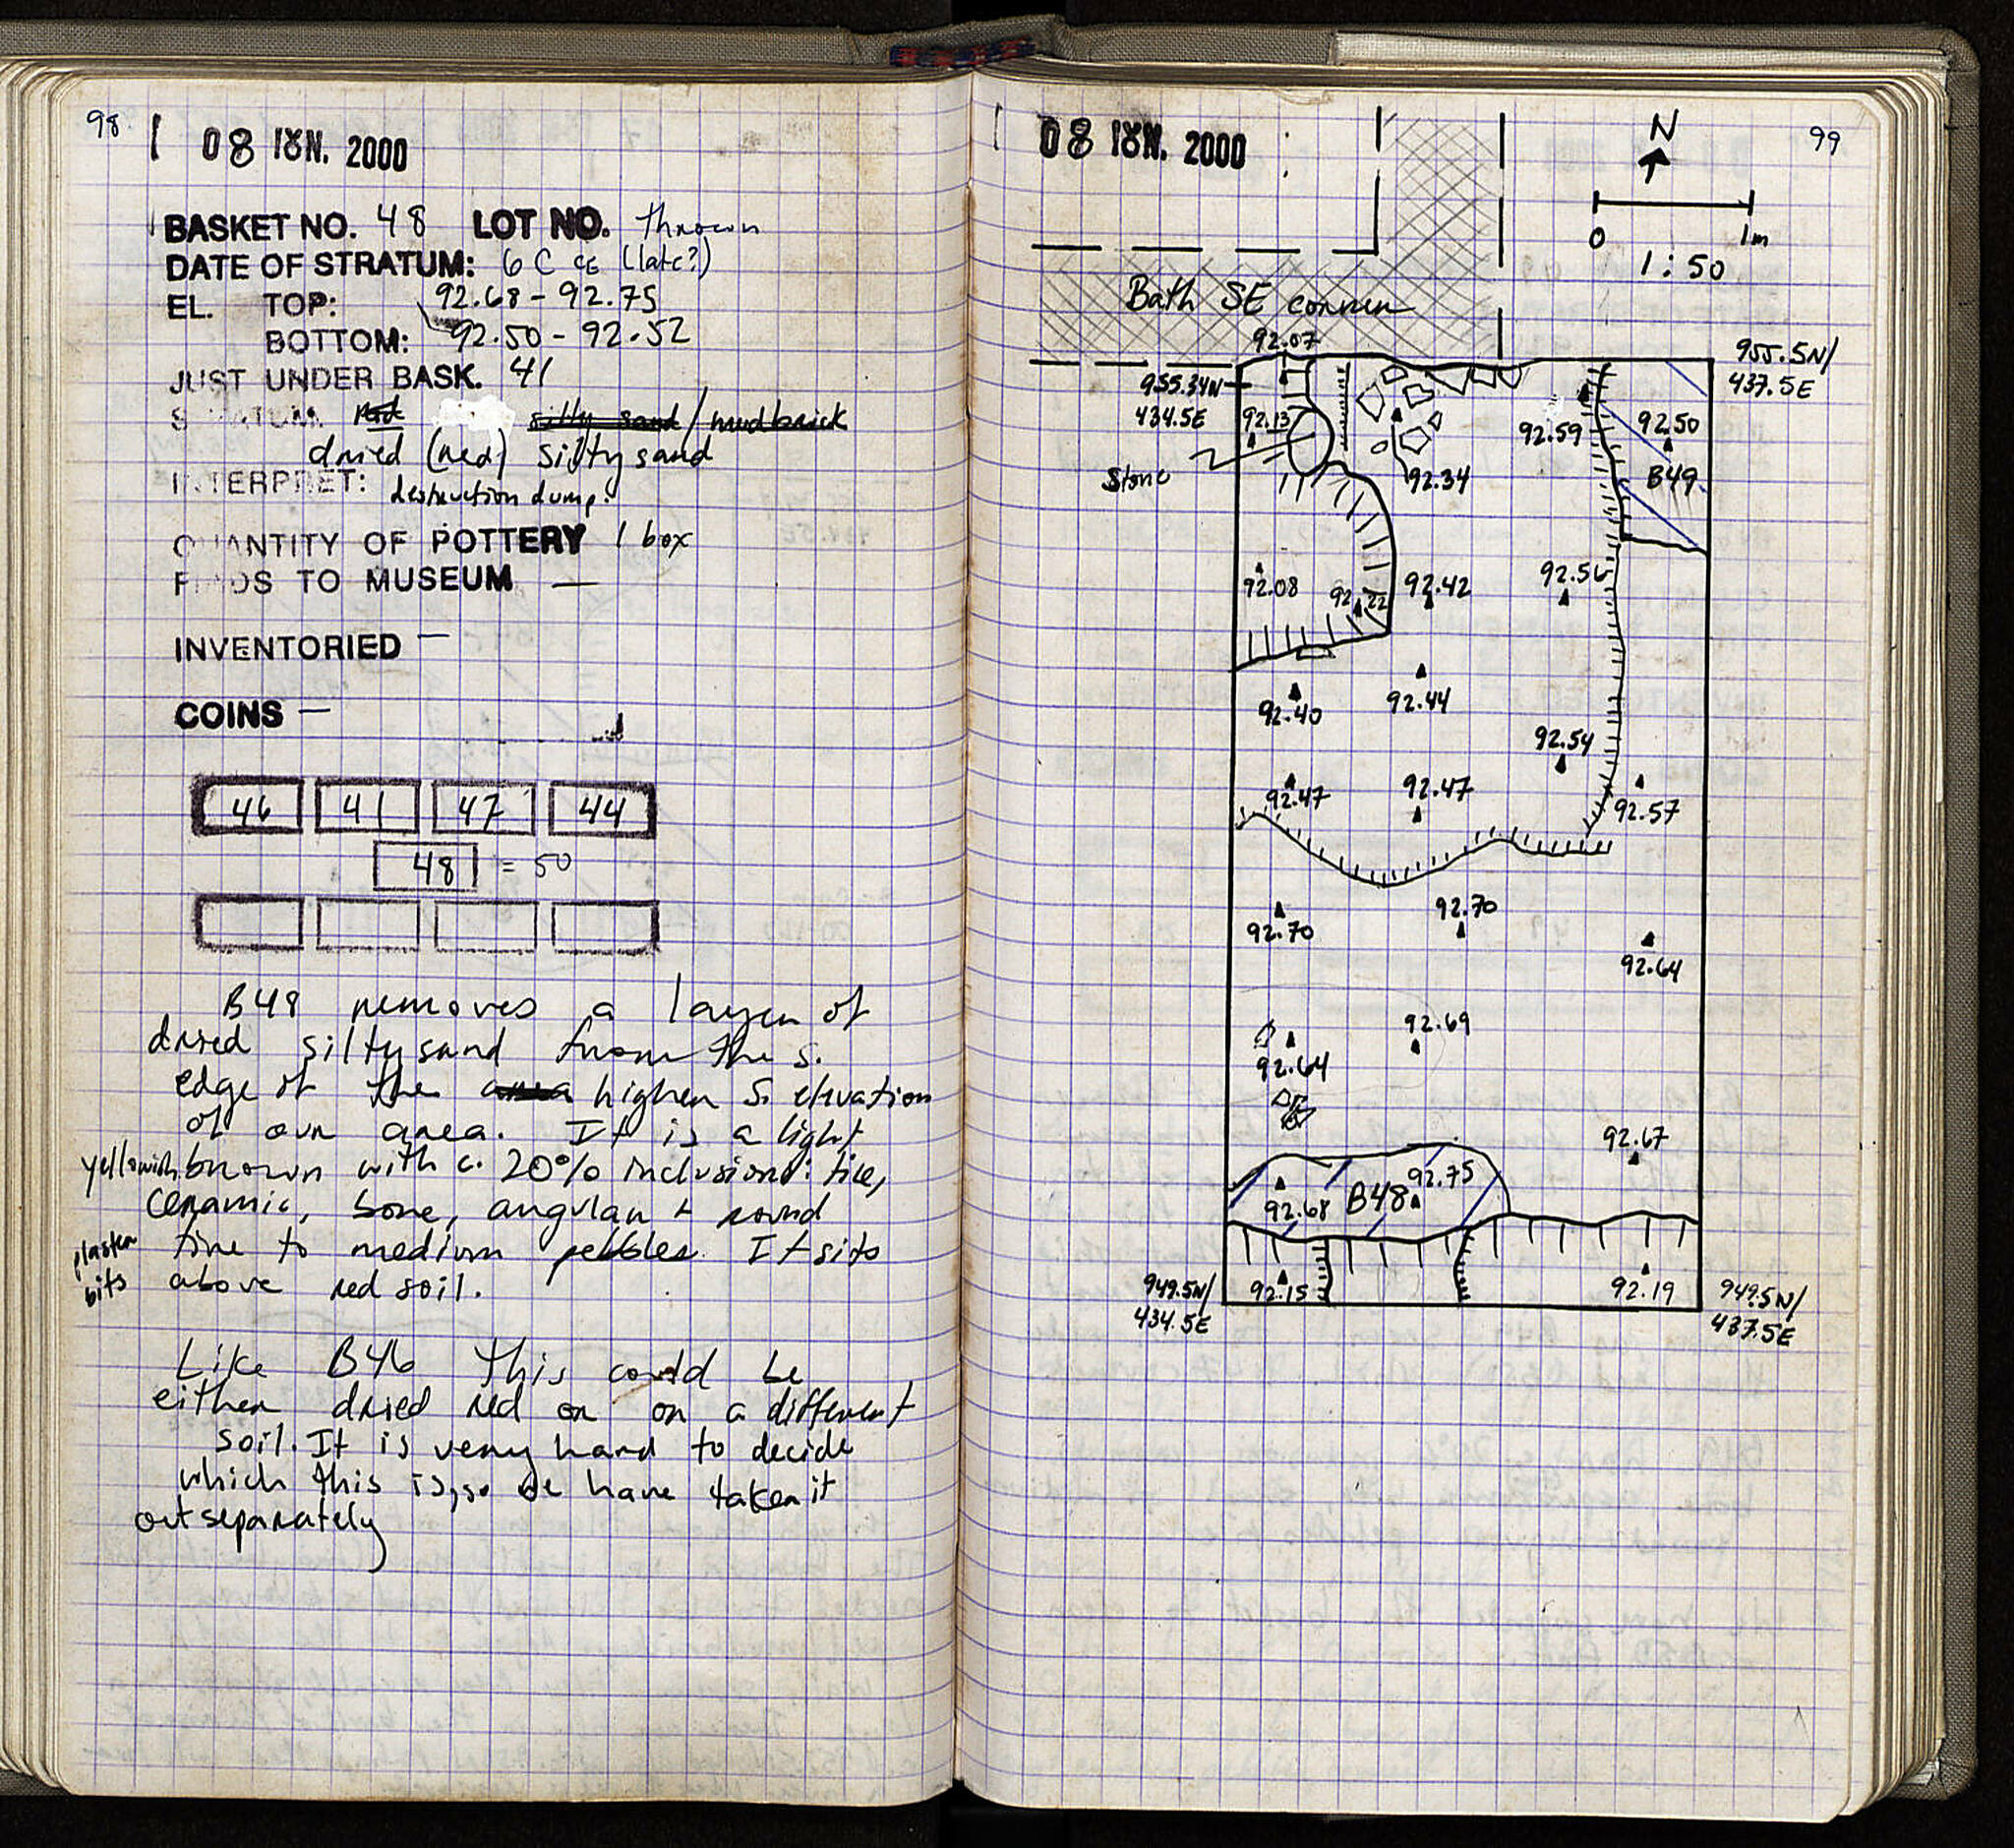 98
08 IOYN. 2000
BASKET NO. 48 LOT NO. thrown
DATE OF STRATUM: 6 C CE (late?)
EL. TOP: 92.68 - 92.75
BOTTOM: 92.50 - 92.52
JUST UNDER BASK. 41
STRATUM: red silty sand / mudbrick
dried (red) silty sand
INTERPRET: destruction dump.
QUANTITY OF POTTERY 1 box
FINDS TO MUSEUM —
INVENTORIED —
COINS —
46 41 47 44
48 = 50
B48 removes a layer of
dried silty sand from the S.
edge of the area higher S. elevation
of our area. It is a light
yellowish brown with c. 20% inclusions: tile,
ceramic, bone, angular + round
plaster bits
fine to medium pebbles. It sits
above red soil.
Like B46 this could be
either dried red or on a different
soil. It is very hard to decide
which this is, so we have taken it
out separately
08 IOYN. 2000
99
N
0 1m
1:50
Bath SE corner
92.07
955.5N/
437.5E
955.34N
434.5E
92.13
92.59
92.50
Stone
92.34
B49
92.08
92.22
92.42
92.56
92.40
92.44
92.54
92.47
92.47
92.57
92.70
92.70
92.64
92.69
92.64
92.67
92.68
B48
92.75
949.5N/
434.5E
92.15
92.19
949.5N/
437.5E